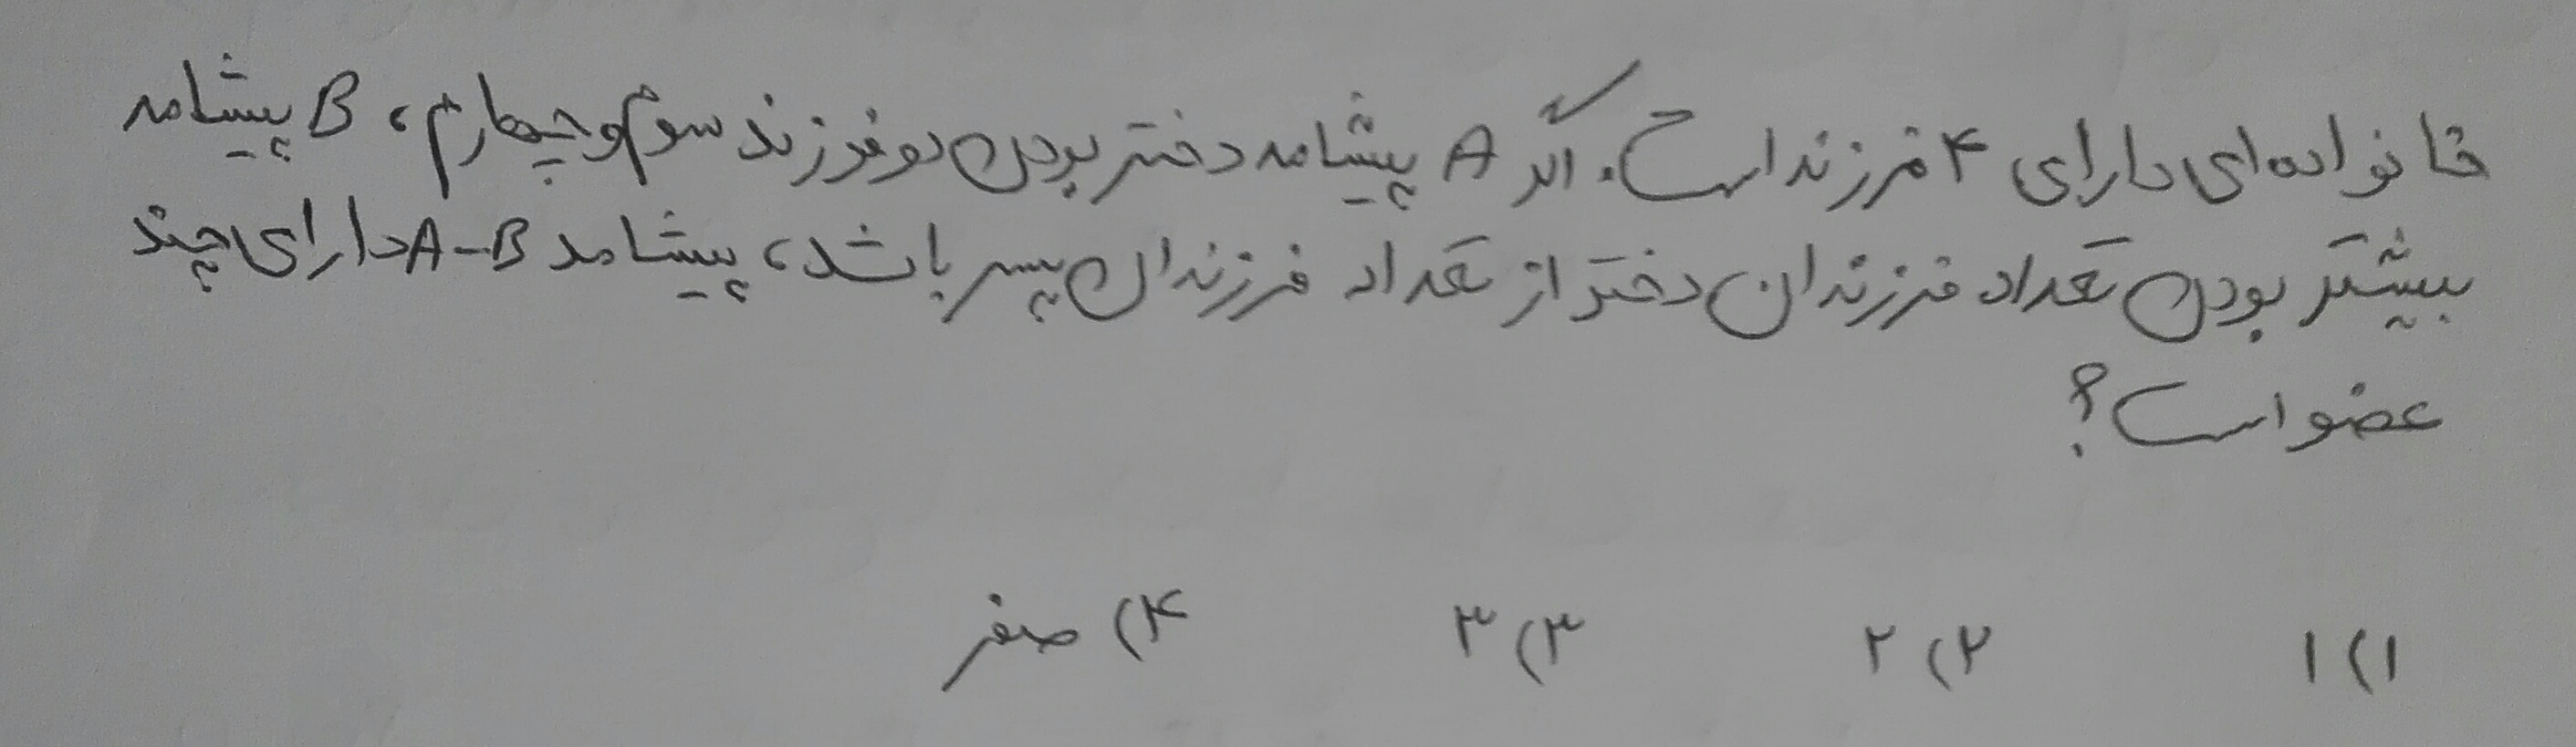 خانواده‌ای دارای ۴ فرزند است. اگر A پیشامد دختر بودن دو فرزند سوم و چهارم، B پیشامد
بیشتر بودن تعداد فرزندان دختر از تعداد فرزندان پسر باشد، پیشامد A-B دارای چند
عضو است؟
۱) ۱ ۲) ۲ ۳) ۳ ۴) صفر